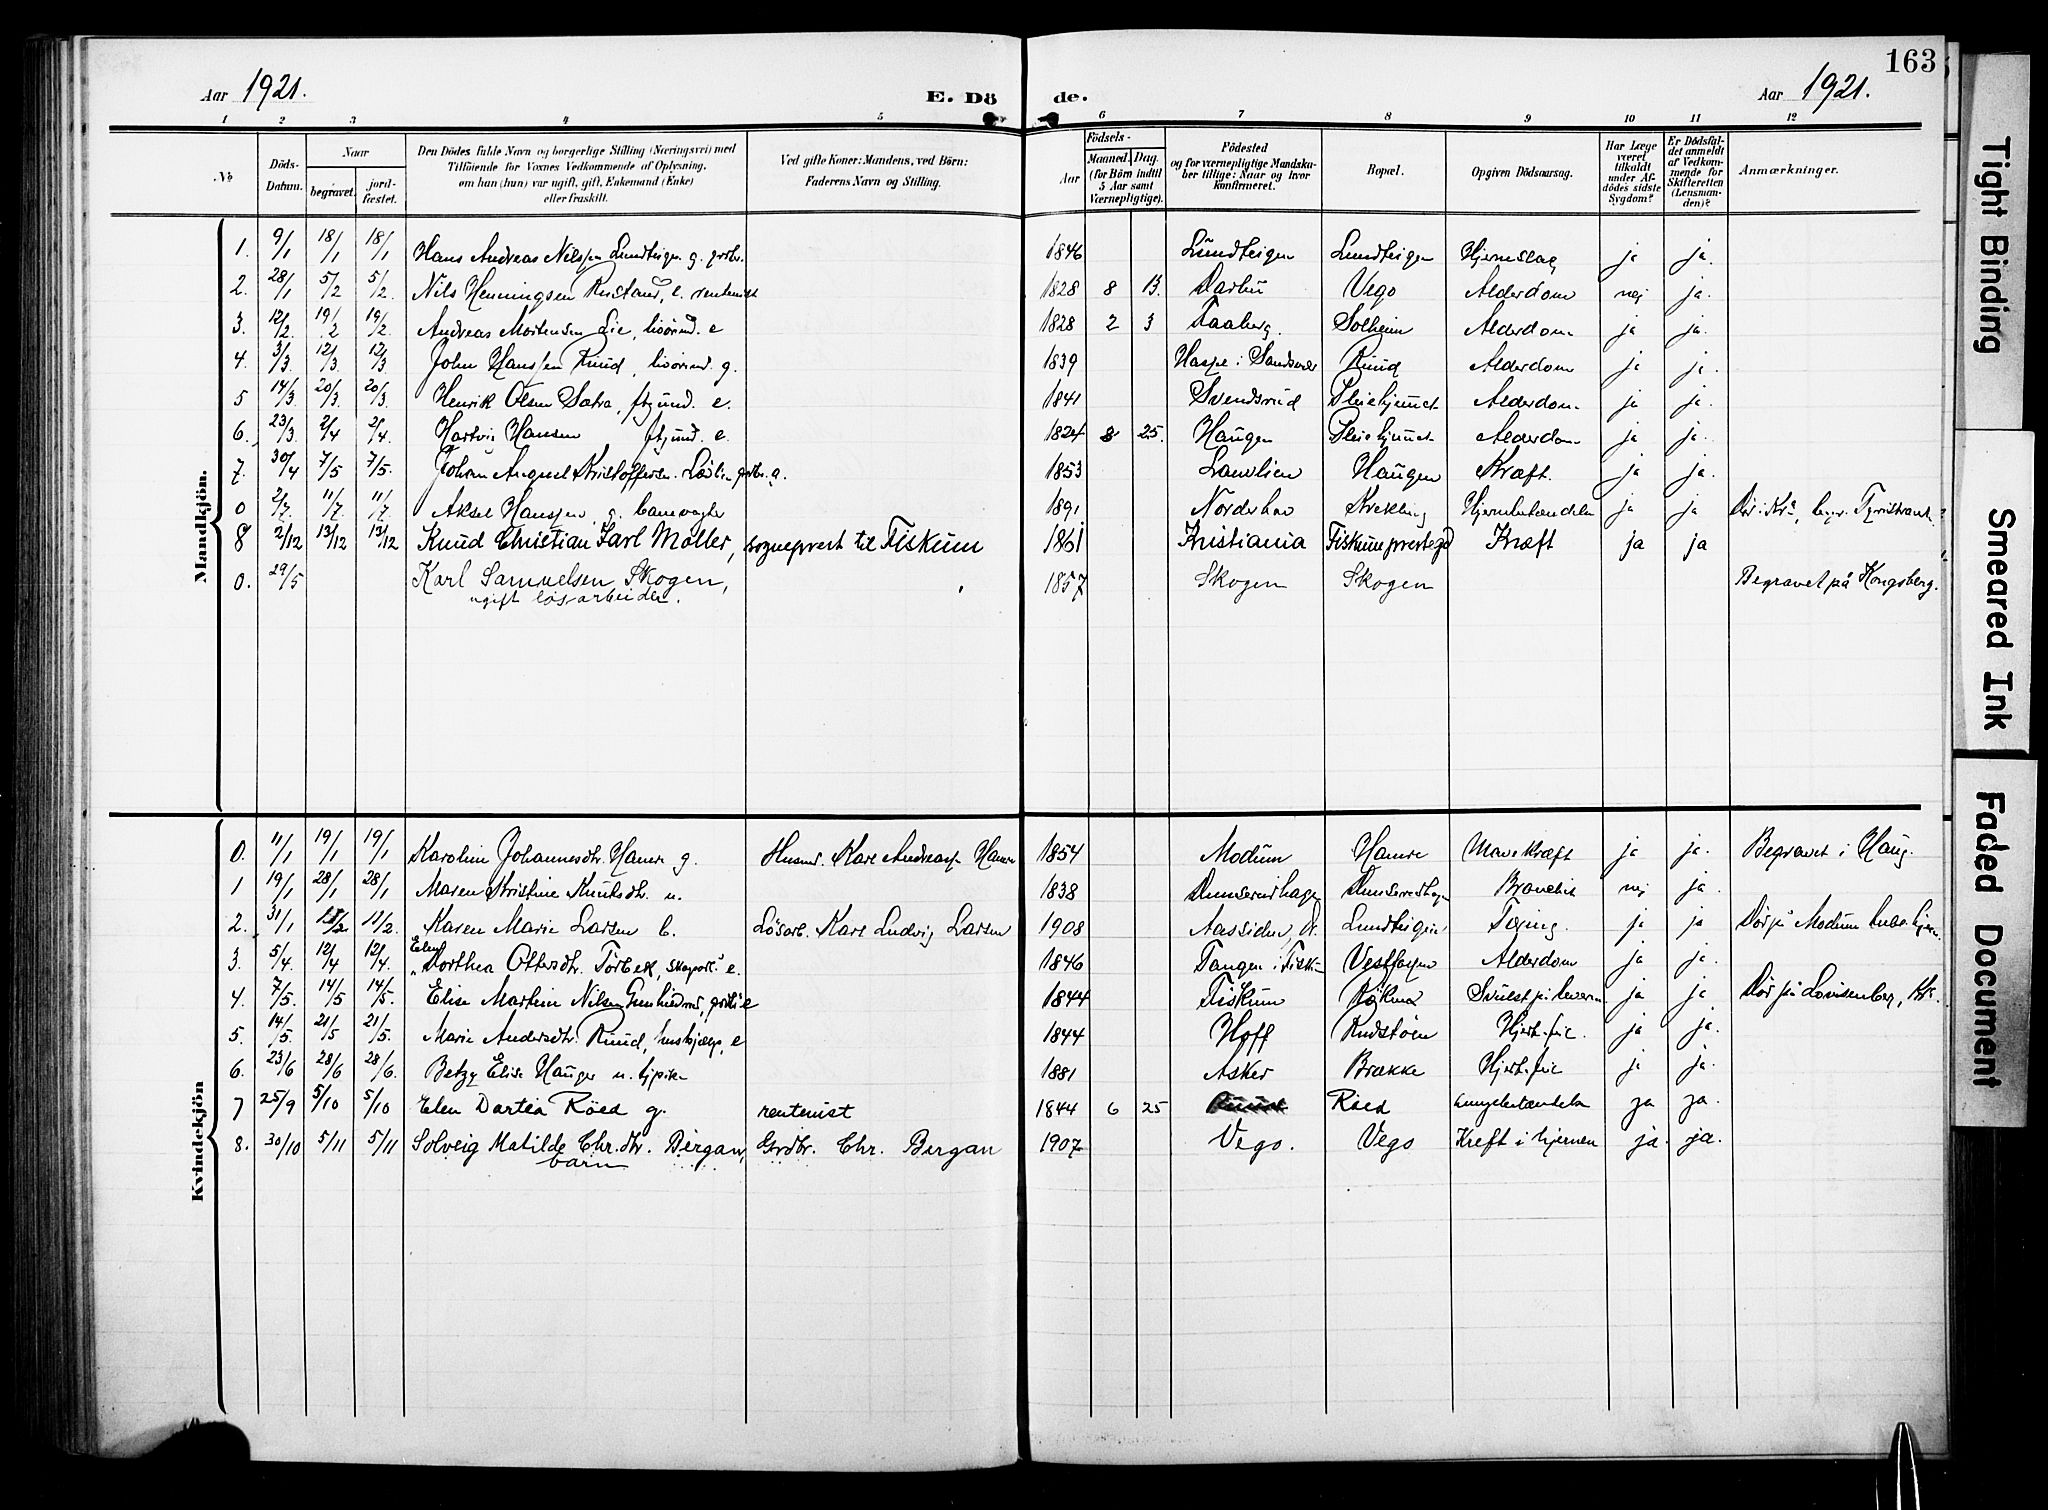 163
Aar 1921. E. Dö de. Aar 1921.
1 2 3 4 5 6 7 8 9 10 11 12
No Döds-Datum. Naar begravet. jordfæstet. Den Dödes fulde Navn og borgerlige Stilling (Næringsvei) med Tilföiende for Voxnes Vedkommende af Oplysning, om han (hun) var ugift, gift, Enkemand (Enke) eller fraskilt. Ved gifte Koner: Mandens, ved Börn: Faderens Navn og Stilling. Födsels- Aar Maaned. Dag. (for Börn indtil 5 Aar samt Værnepligtige). Födested og for værnepligtige Mandskaber tillige: Naar og hvor konfirmeret. Bopæl. Opgiven Dödsaarsag. Har Læge været tilkaldt under Afdödes sidste Sygdom? Er Dödsfaldet anmeldt af Vedkommende for Skifteretten (Lensmanden)? Anmærkninger.
Mandkjön.
1. 9/1 18/1 18/1 Hans Andreas Nilssen Lundteigen g. grdbr. 1846 Lundteigen Lundteigen Hjerneslag ja ja.
2. 28/1 5/2 5/2. Nils Henningsen Rustand, e. rentenist 1828 8 13. Darbu Vego Alderdom nej ja.
3. 12/2. 19/2 19/2. Andreas Mortensen Lie, e 1828 2 3 Faaberg. Solheim Alderdom ja ja.
4. 3/3. 12/3. 12/3 John Hanssen Ruud, g. 1839 i Sandsvær Ruud Alderdom ja ja.
5 14/3. 20/3. 20/3. Henrik Olsen Sætra, e. 1841 Svendsrud Pleiehjemmet Alderdom ja ja.
6. 23/3. 2/4 2/4. Hartvig Hansen e. 1824 8 25. Haugen Pleiehjemmet Alderdom ja ja.
7. 30/4 7/5 7/5. Johan August Kristoffersen grdbr. g. 1853 Haugen Kræft. ja ja.
0 2/7. 11/7. 11/7 Aksel Hanssen g. banevogter 1891 Norderhov Krekling Hjernebetændelse ja ja Död i Kr.a, begr. Tyristrand.
8 2/12 13/12 13/12 Knud Christian Karl Möller, sogneprest til Fiskum 1861 Kristiania Fiskum prestegd Kræft ja ja
0. 29/5 Karl Samuelsen Skogen, 1857 Skogen Skogen Begravet på Kongsberg.
ugift lösarbeider.
Kvindekjön
0. 11/1 19/1 19/1 Karoline Johannesdtr. Hamre g. Husmd. Karl Andreas Hamre 1854 Modum Hamre Mavekræft ja ja. Begravet i Haug.
1 19/1 28/1 28/1. Maren Kristine Knutsdtr. u. 1838 Dunserudhagen Dunserudhagen Bronchit nej ja.
2. 31/1 11/2 11/2. Karen Marie Larsen b. Lösarb. Karl Ludvig Larsen 1908 Aassiden, Dr. Lundteigen Tæring. ja ja Död på Modum tub.hjem.
3. 5/4. 12/4 12/4. Elen Dorthea Ottersdtr. Torbek, e. 1846 Tangen i Fiskum Vestfossen Alderdom ja ja.
4. 7/5. 14/5 14/5. Elise Martine Nilsen e 1844 Fiskum Svulst på leveren ja ja Död på Lovisenberg, Kr.
5. 14/5. 21/5 21/5. Marie Andersdtr. Ruud, e 1844 Hoff Rudstöen Hjertefeil. ja ja.
6. 23/6 28/6 28/6. Betzy Elise Hauger u. tjpike 1881 Asker Brække Hjertefeil ja ja.
7 25/9 5/10 5/10 Elen Dortea Röed g. rentenist 1844 6 25 Röed Lungebetændelse ja ja.
8. 30/10 5/11 5/11 Solveig Matilde Chr.dtr. Bergan, Grdbr. Chr. Bergan 1907 Vego. Vego Kreft i hjernen ja. ja.
barn
Tight Binding
Smeared Ink
Faded Document